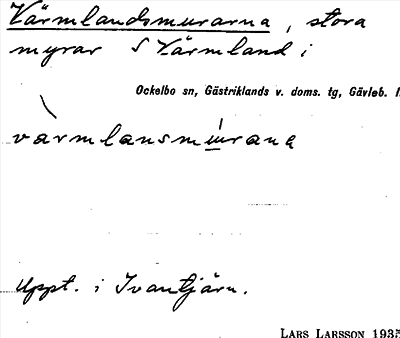 Värmlandsmurarna, stora
myrar i Värmland i
Ockelbo sn, Gästriklands v. doms. tg, Gävleb. l
värmlansmurana
Uppt. i Ivantjärn.
LARS LARSSON 1935